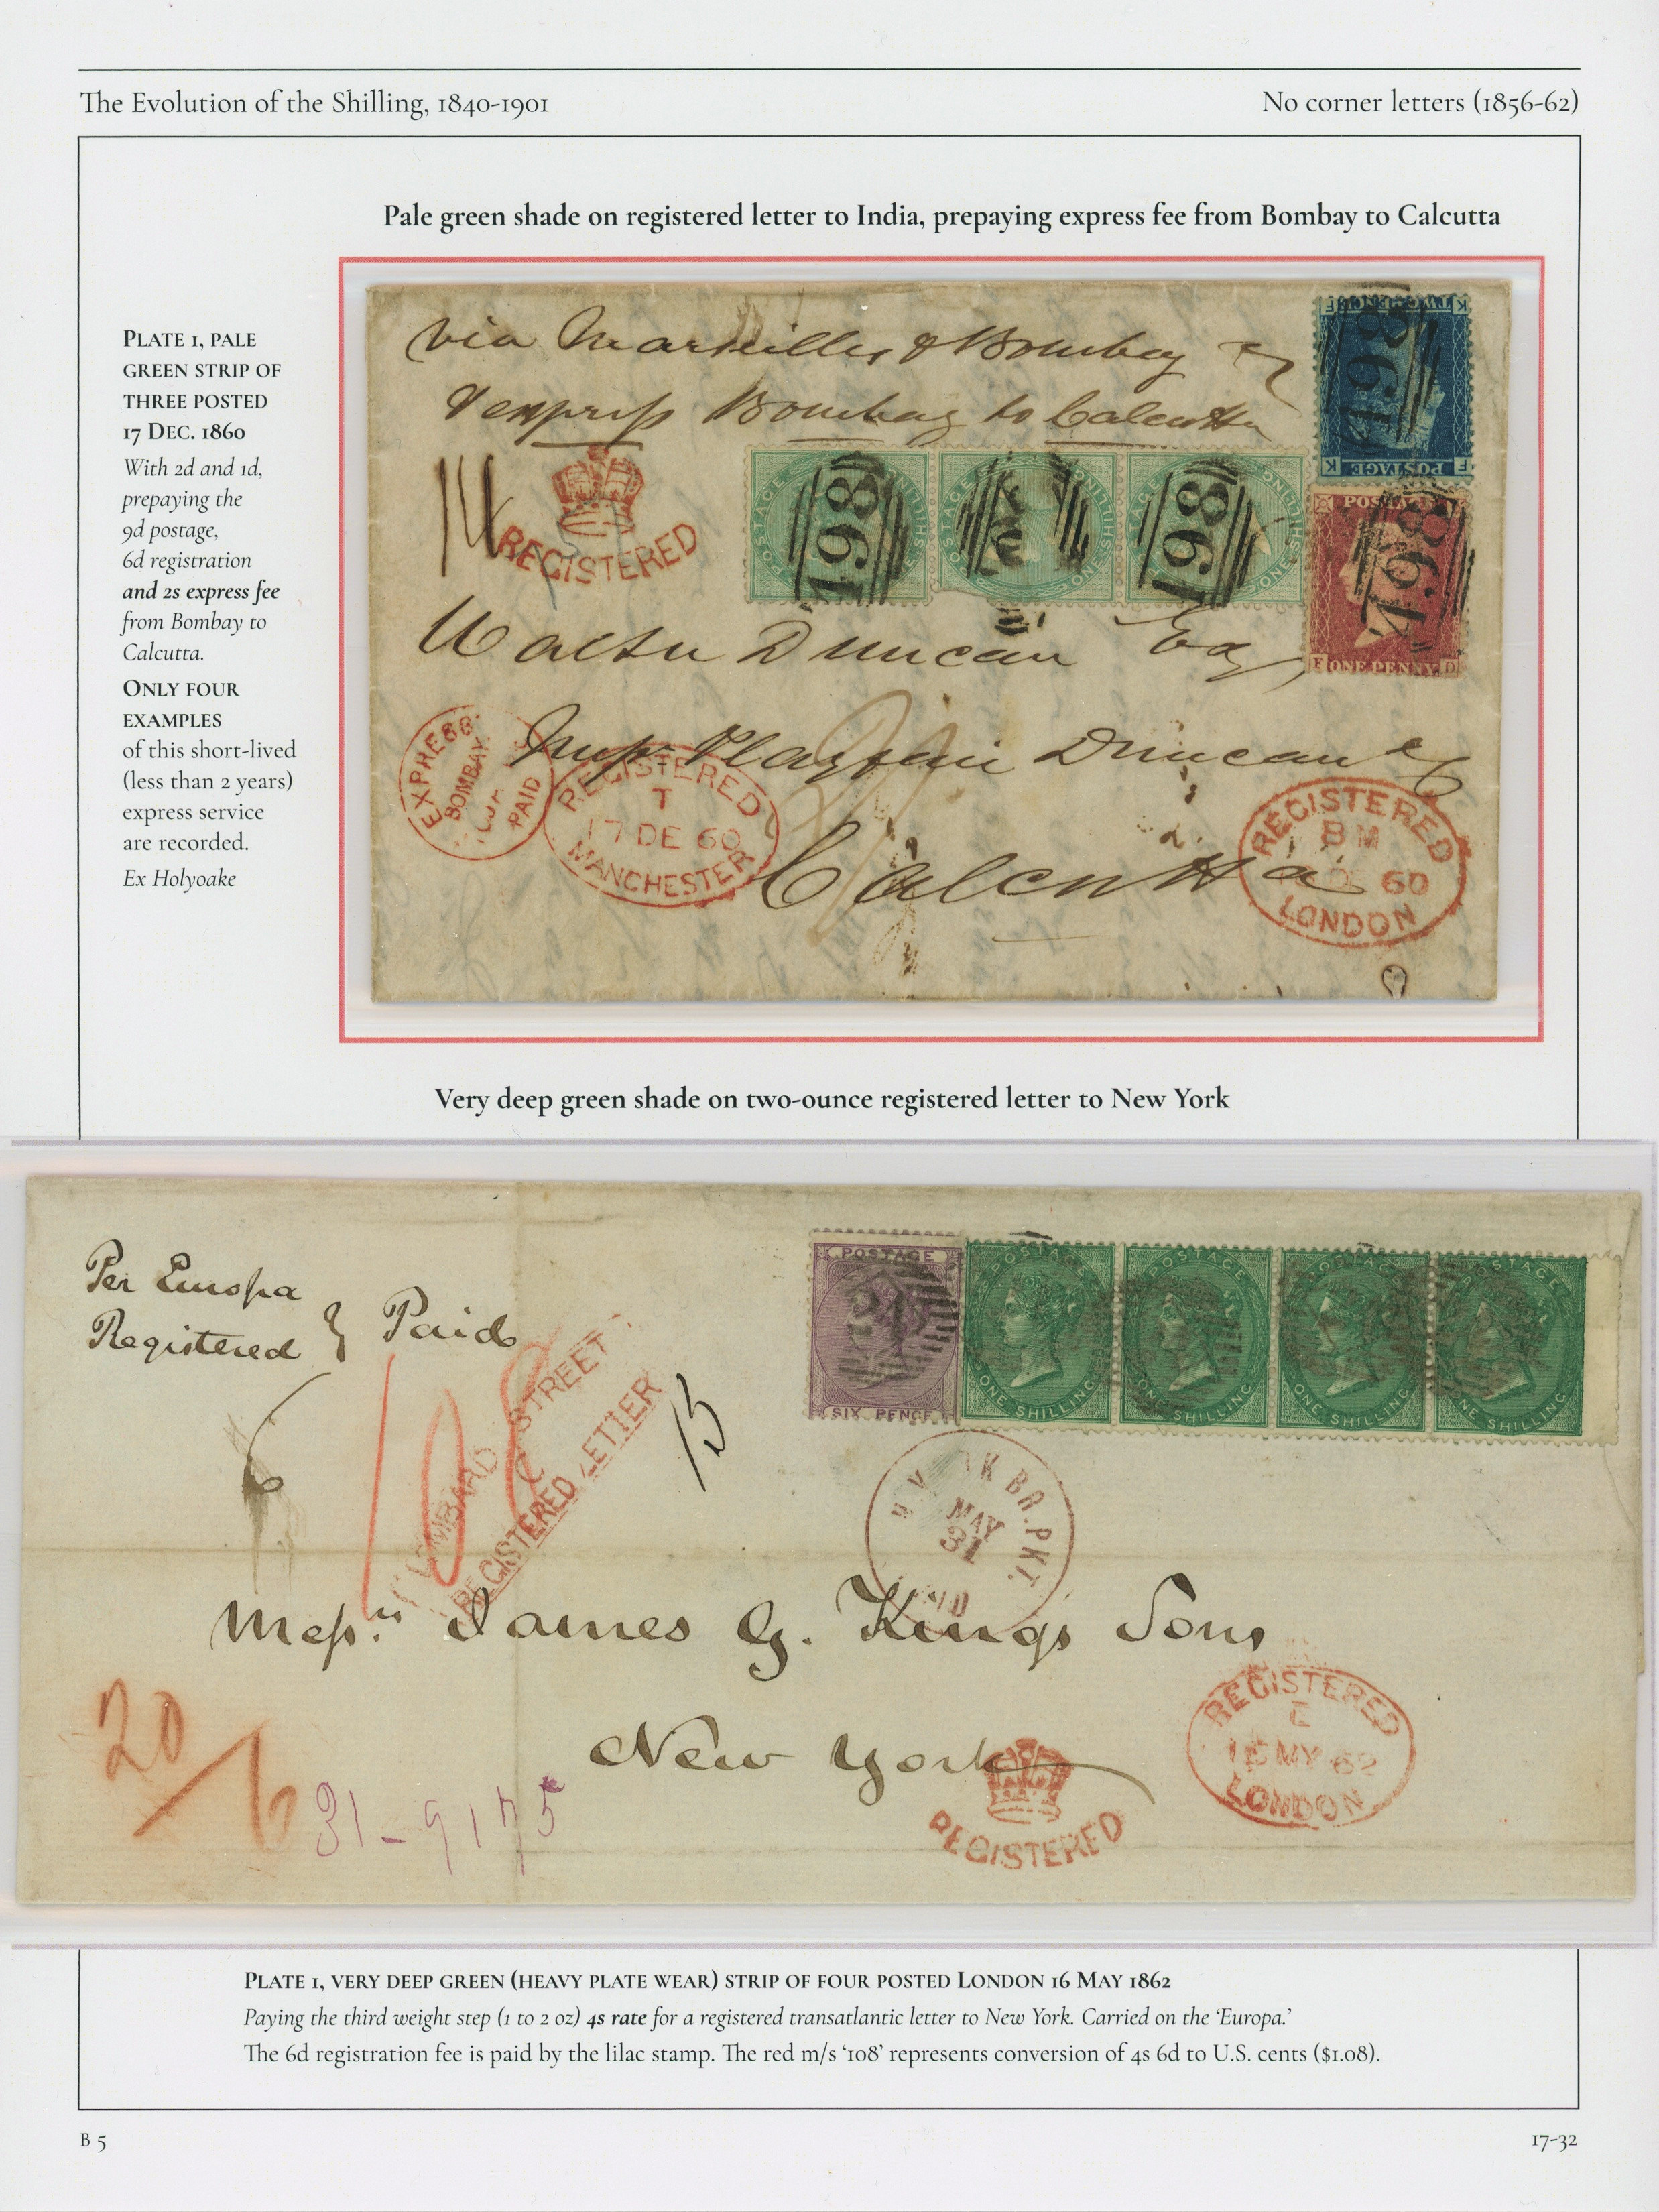 The Evolution of the Shilling, 1840-1901
No corner letters (1856-62)
Pale green shade on registered letter to India, prepaying express fee from Bombay to Calcutta
PLATE 1, PALE
GREEN STRIP OF
THREE POSTED
17 DEC. 1860
With 2d and 1d,
prepaying the
9d postage,
6d registration
and 2s express fee
from Bombay to
Calcutta.
ONLY FOUR
EXAMPLES
of this short-lived
(less than 2 years)
express service
are recorded.
Ex Holyoake
via Marseilles & Bombay
& express Bombay to Calcutta
REGISTERED
POSTAGE ONE SHILLING
498
POSTAGE ONE SHILLING
POSTAGE ONE SHILLING
498
K TWO PENCE F
498
F POSTAGE K
POSTAGE
498
F ONE PENNY D
Walter Duncan Esq
Messrs Playfair Duncan & Co
Calcutta
EXPRESS
BOMBAY
PAID
REGISTERED
T
17 DE 60
MANCHESTER
REGISTERED
BM
DE 60
LONDON
Very deep green shade on two-ounce registered letter to New York
Per Europa
Registered & Paid
108
LOMBARD STREET
C
REGISTERED LETTER
POSTAGE
SIX PENCE
POSTAGE
ONE SHILLING
POSTAGE
ONE SHILLING
POSTAGE
ONE SHILLING
POSTAGE
ONE SHILLING
N. YORK BR. PKT.
MAY
31
Messrs James G. Kings Sons
New York
20/6
31-9175
REGISTERED
REGISTERED
E
16 MY 62
LONDON
PLATE 1, VERY DEEP GREEN (HEAVY PLATE WEAR) STRIP OF FOUR POSTED LONDON 16 MAY 1862
Paying the third weight step (1 to 2 oz) 4s rate for a registered transatlantic letter to New York. Carried on the ‘Europa.’
The 6d registration fee is paid by the lilac stamp. The red m/s ‘108’ represents conversion of 4s 6d to U.S. cents ($1.08).
B 5
17-32